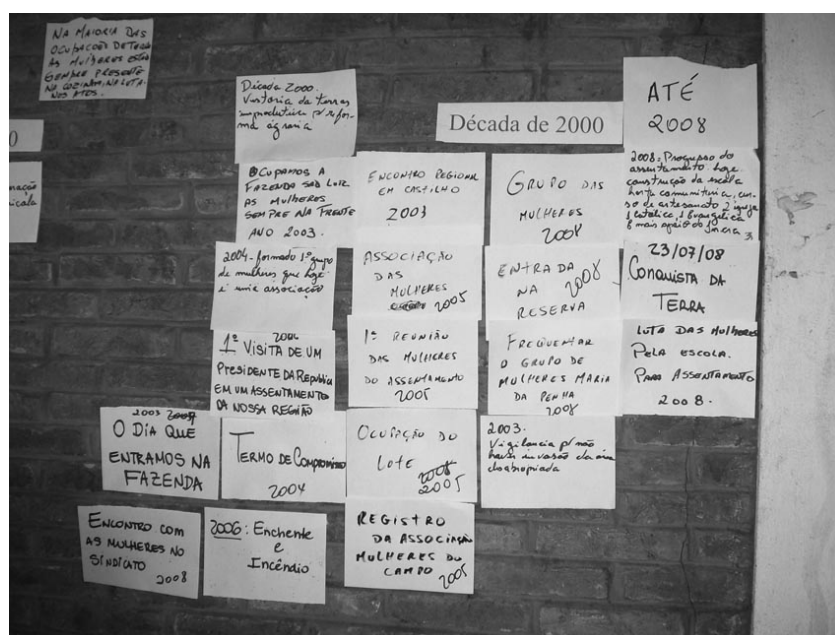 NA MAIORIA DAS
OCUPAÇÕES DE TERRA
AS MULHERES ESTÃO
SEMPRE PRESENTE
NA COZINHA, NA LUTA.
NOS ATOS.
0
Década 2000.
Vistoria da terras
improdutiva p/ refor-
ma agraria
Década de 2000
ATÉ
2008
OCUPAMOS A
FAZENDA SÃO LUIZ
AS MULHERES
SEMPRE NA FRENTE
ANO 2003.
ENCONTRO REGIONAL
EM CASTILHO
2003
GRUPO DAS
MULHERES
2008
2008: Progresso do
assentamento. hoje
construção da escola
horta comunitaria, cur-
so de artesanato 2 igreja
1 catolica, 1 Evangélica
E mais apoio do Incra
2004 - formado 1º grupo
de mulheres que hoje
é uma associação
ASSOCIAÇÃO
DAS
MULHERES
2005
ENTRADA
NA 2008
RESERVA
23/07/08
CONQUISTA DA
TERRA
2006
1ª VISITA DE UM
PRESIDENTE DA REPUBLICA
EM UM ASSENTAMENTO
DA NOSSA REGIÃO
1ª REUNIÃO
DAS MULHERES
DO ASSENTAMENTO
2005
FREQUENTAR
O GRUPO DE
MULHERES MARIA
DA PENHA
2008
LUTA DAS MULHERES
PELA ESCOLA.
PARA ASSENTAMENTO
2008.
2003
O DIA QUE
ENTRAMOS NA
FAZENDA
TERMO DE COMPROMISSO
2004
OCUPAÇÃO DO
LOTE 2008
2005
2003.
Vigilancia p/ não
haver invasão da área
desabropiada
ENCONTRO COM
AS MULHERES NO
SINDICATO
2008
2006: Enchente
e
Incêndio
REGISTRO
DA ASSOCIAÇÃO
MULHERES DO
CAMPO 2005